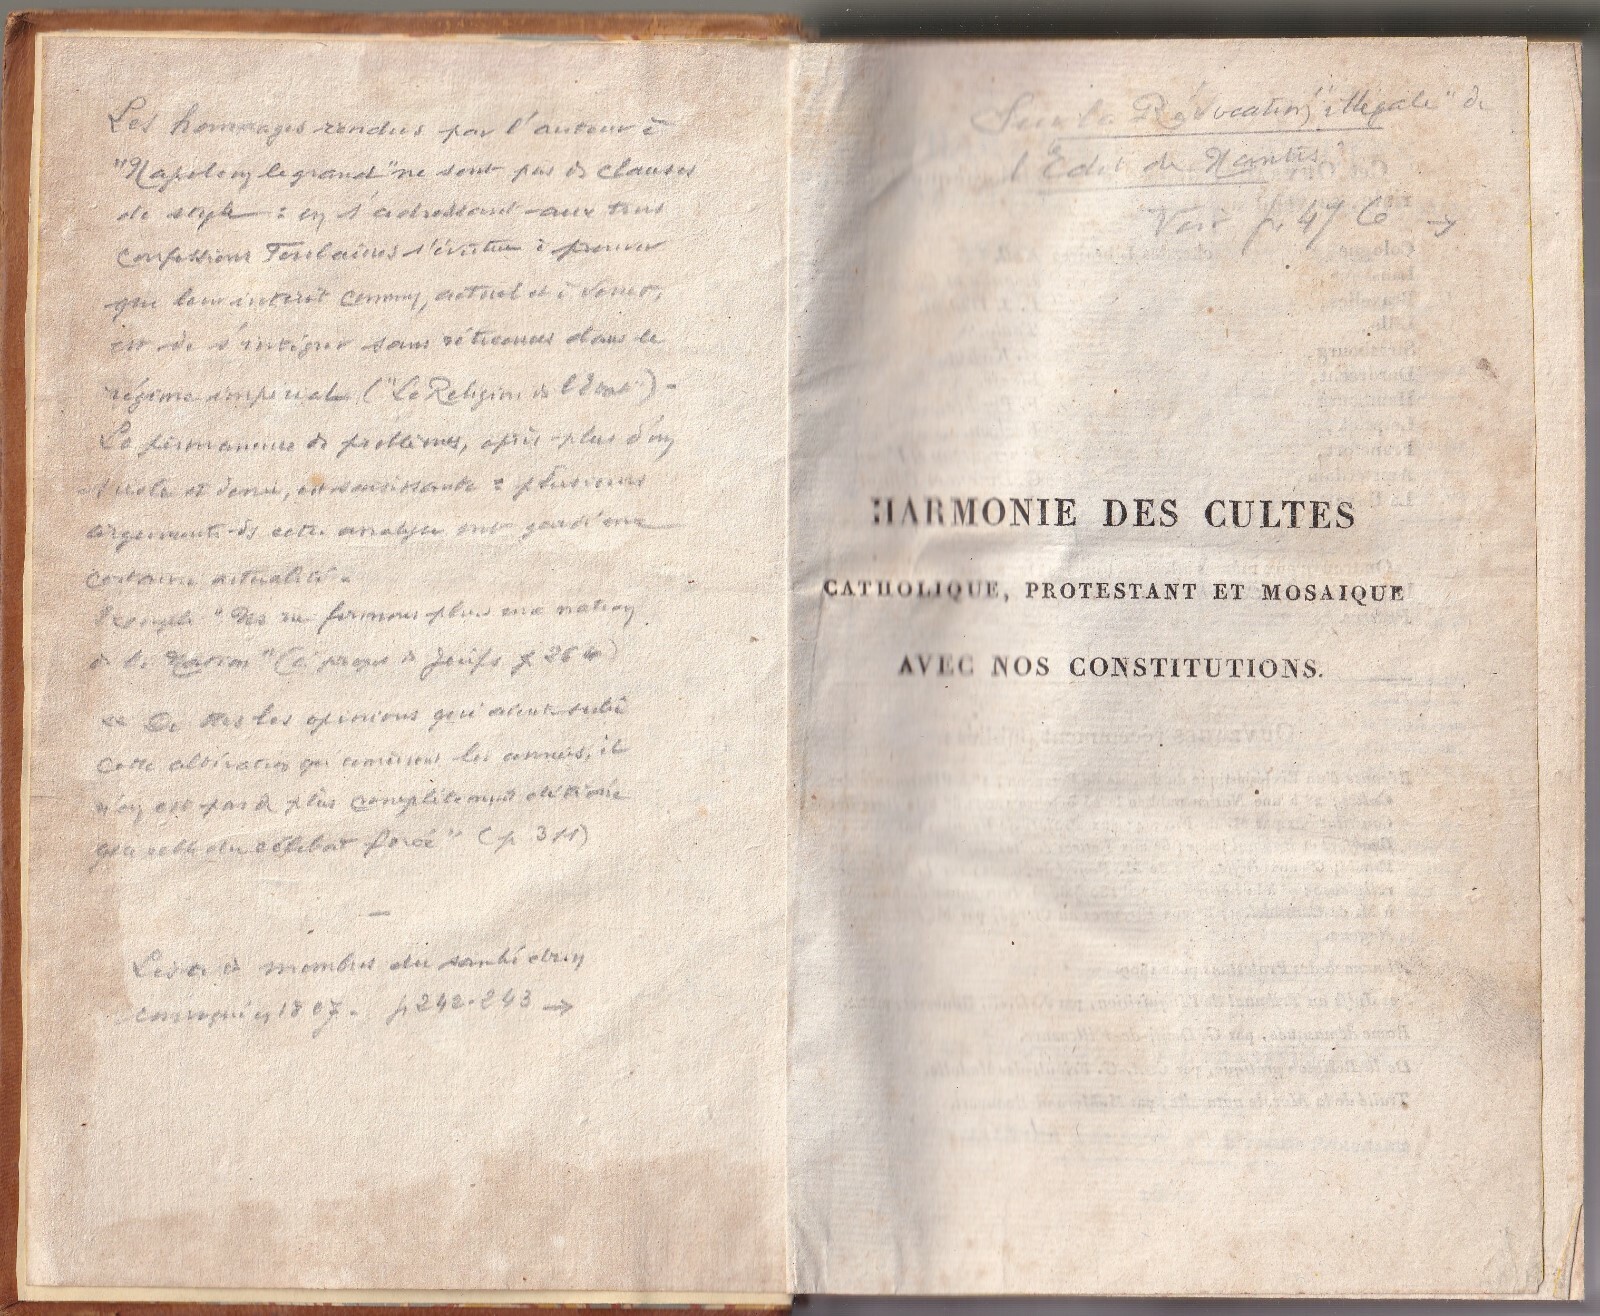 Les hommages rendus par l'auteur à
"Napoléon le grand" ne sont pas de clauses
de style : en s'adressant aux trois
confessions l'évertue à prouver
que leur intérêt commun, actuel et à venir,
est de s'intégrer sans réticences dans le
régime impérial ("La Religion de l'Etat") -
La permanence de problèmes, après plus d'un
siècle et demi, est saisissante : plusieurs
arguments de cette analyse ont gardé une
certaine actualité -
Exemple " ne formons plus une nation
de la Nation" (à propos de Juifs p 264)
"De ttes les opinions qui aient subi
cette altération qu'amènent les années, il
n'en est pas de plus complètement
que celle du célibat forcé" (p 311)
—
Liste de membres du sanhédrin
convoqué en 1807 - p 242-243 →
Sur la Révocation "illégale" de
l'Edit de Nantes
Voir p. 47 6 →
HARMONIE DES CULTES
CATHOLIQUE, PROTESTANT ET MOSAIQUE
AVEC NOS CONSTITUTIONS.